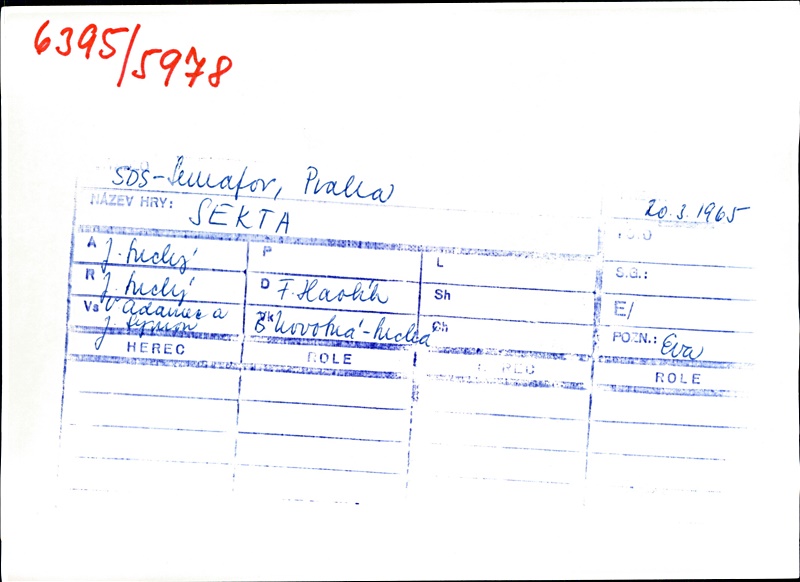 6395/5978
SDS-Semafor, Praha
20.3.1965
NÁZEV HRY: SEKTA
A J. Suchý P L S.G.:
R J. Suchý D F. Havlík Sh E/
Vs V. Adamec a J. Synon Vk B. Novotná-Suchá Ch POZN.: Eva
HEREC ROLE HEREC ROLE